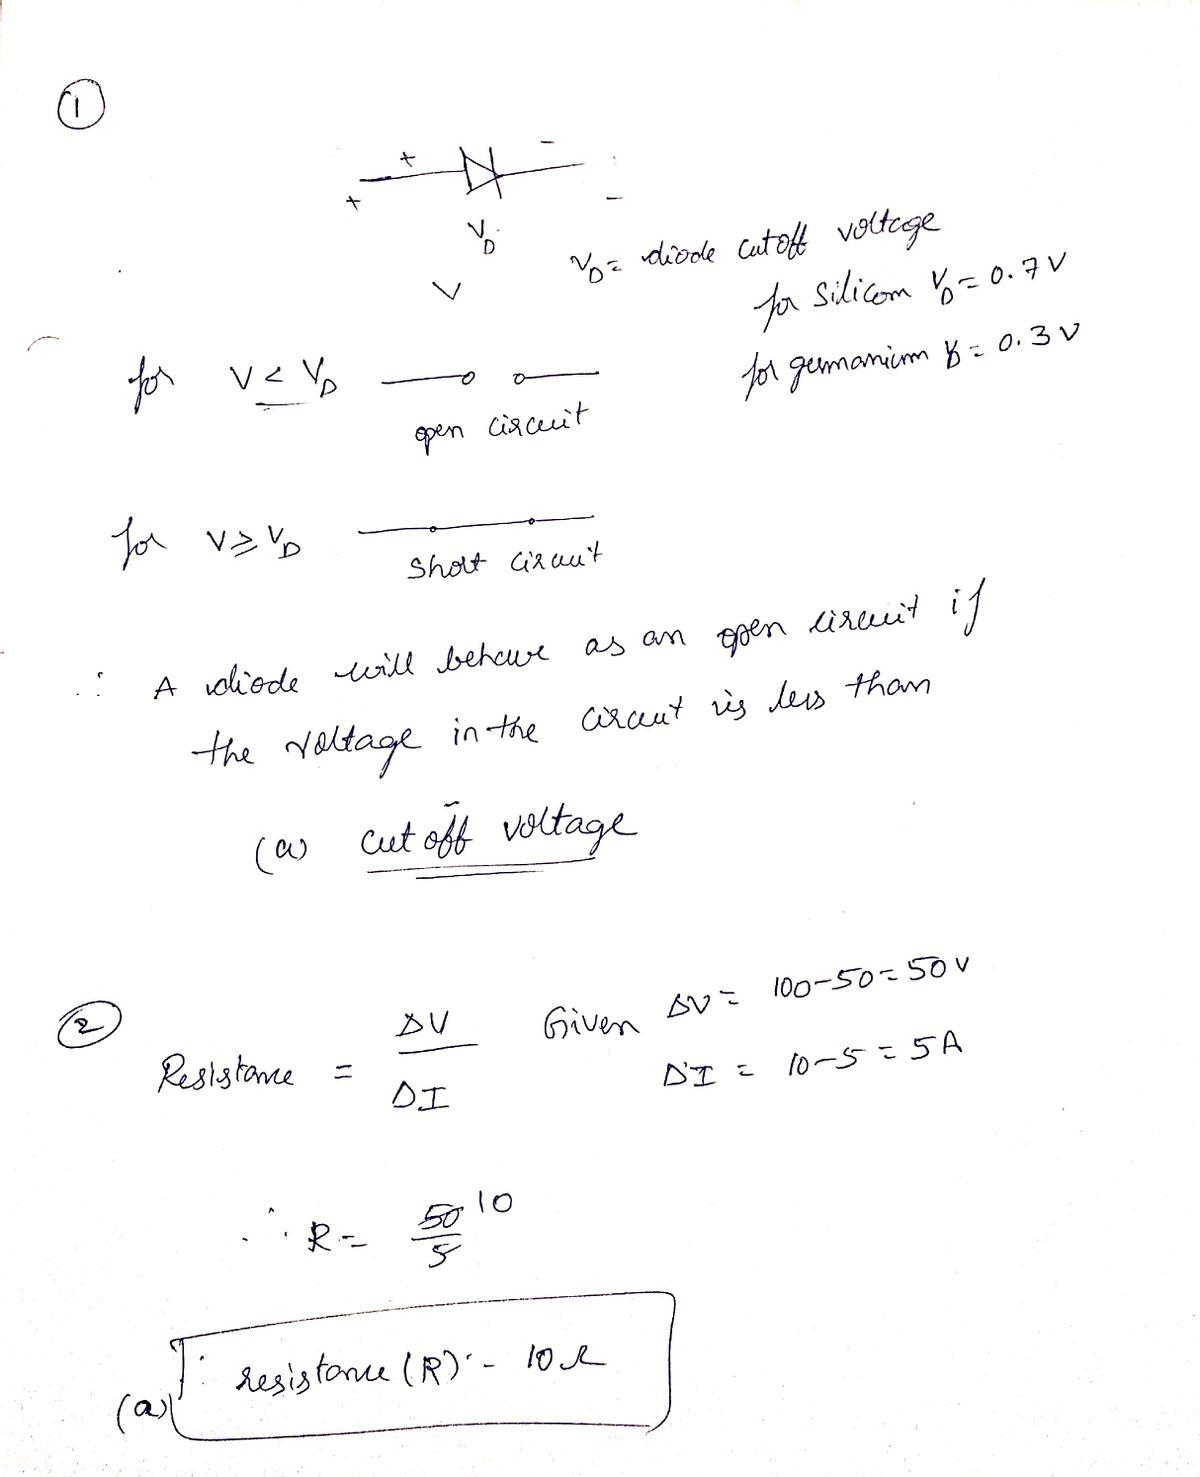 1
+ -
+ -
V_D
V_D = diode cutoff voltage
V
for Silicon V_D = 0.7 V
for germanium V_D = 0.3 V
for V < V_D
open circuit
for V ≥ V_D
Short circuit
∴ A diode will behave as an open circuit if
the voltage in the circuit is less than
(a) cut off voltage
2
Resistance = ΔV / ΔI Given ΔV = 100-50 = 50 V
ΔI = 10-5 = 5A
∴ R = 50/5 10
(a) ∴ resistance (R) = 10 Ω